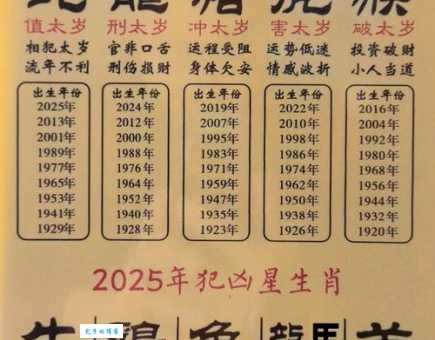 蛇 龍 猪 虎 猴
值太岁 刑太岁 冲太岁 害太岁 破太岁
相犯太岁 官非口舌 运程受阻 运势低迷 投资破财
流年不利 刑伤损财 身体欠安 情感波折 小人当道
出生年份 出生年份 出生年份 出生年份 出生年份
2025年 2024年 2019年 2022年 2016年
2013年 2012年 2007年 2010年 2004年
2001年 2000年 1995年 1998年 1992年
1989年 1988年 1983年 1986年 1980年
1977年 1976年 1971年 1974年 1968年
1965年 1964年 1959年 1962年 1956年
1953年 1952年 1947年 1950年 1944年
1941年 1940年 1935年 1938年 1932年
1929年 1928年 1923年 1926年 1920年
2025年犯凶星生肖
牛 兔 龍 馬 羊